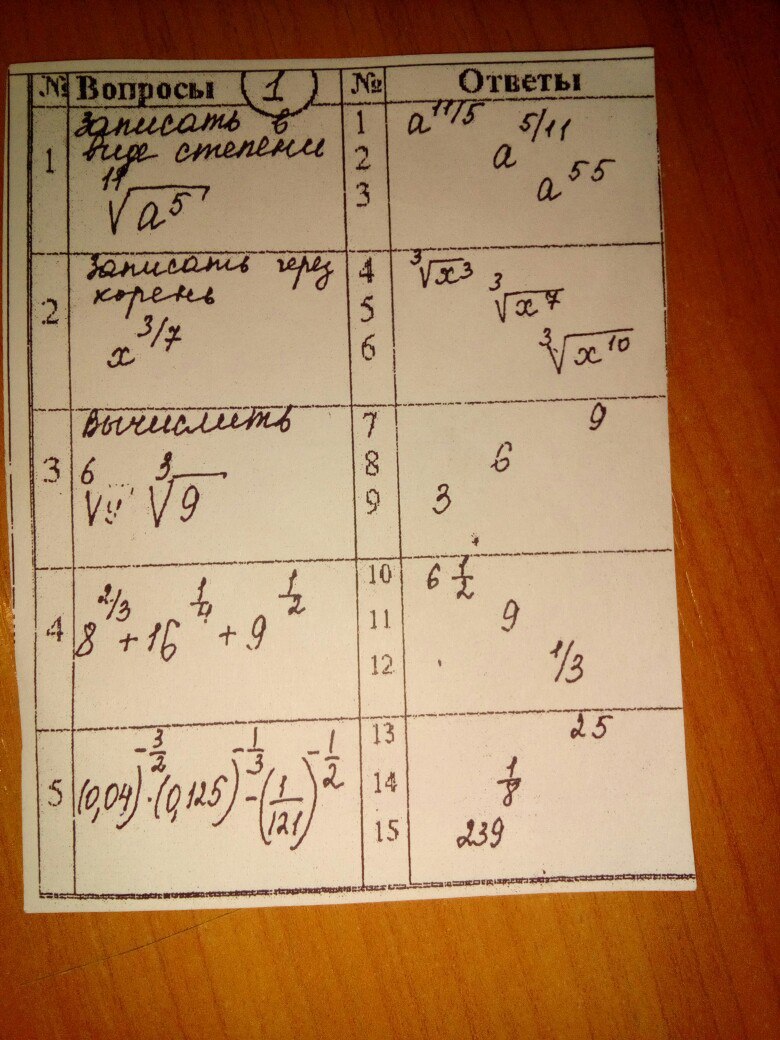 № Вопросы 1 № Ответы
1 Записать в виде степени
¹¹√a⁵
1 a^11/5
2 a^5/11
3 a^55
2 Записать через корень
x^3/7
4 ³√x³
5 ³√x⁷
6 ³√x¹⁰
3 Вычислить
³√9
7 9
8 6
9 3
4 8^2/3 + 16^1/4 + 9^1/2
10 6 1/2
11 9
12 1/3
5 (0,04)^-3/2 · (0,125)^-1/3 - (1/121)^-1/2
13 25
14 1/8
15 239